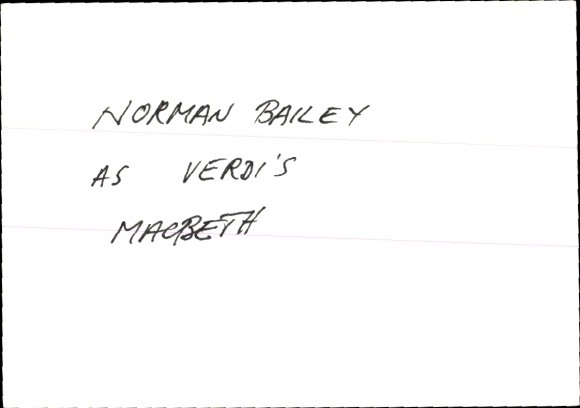 NORMAN BAILEY
AS VERDI'S
MACBETH